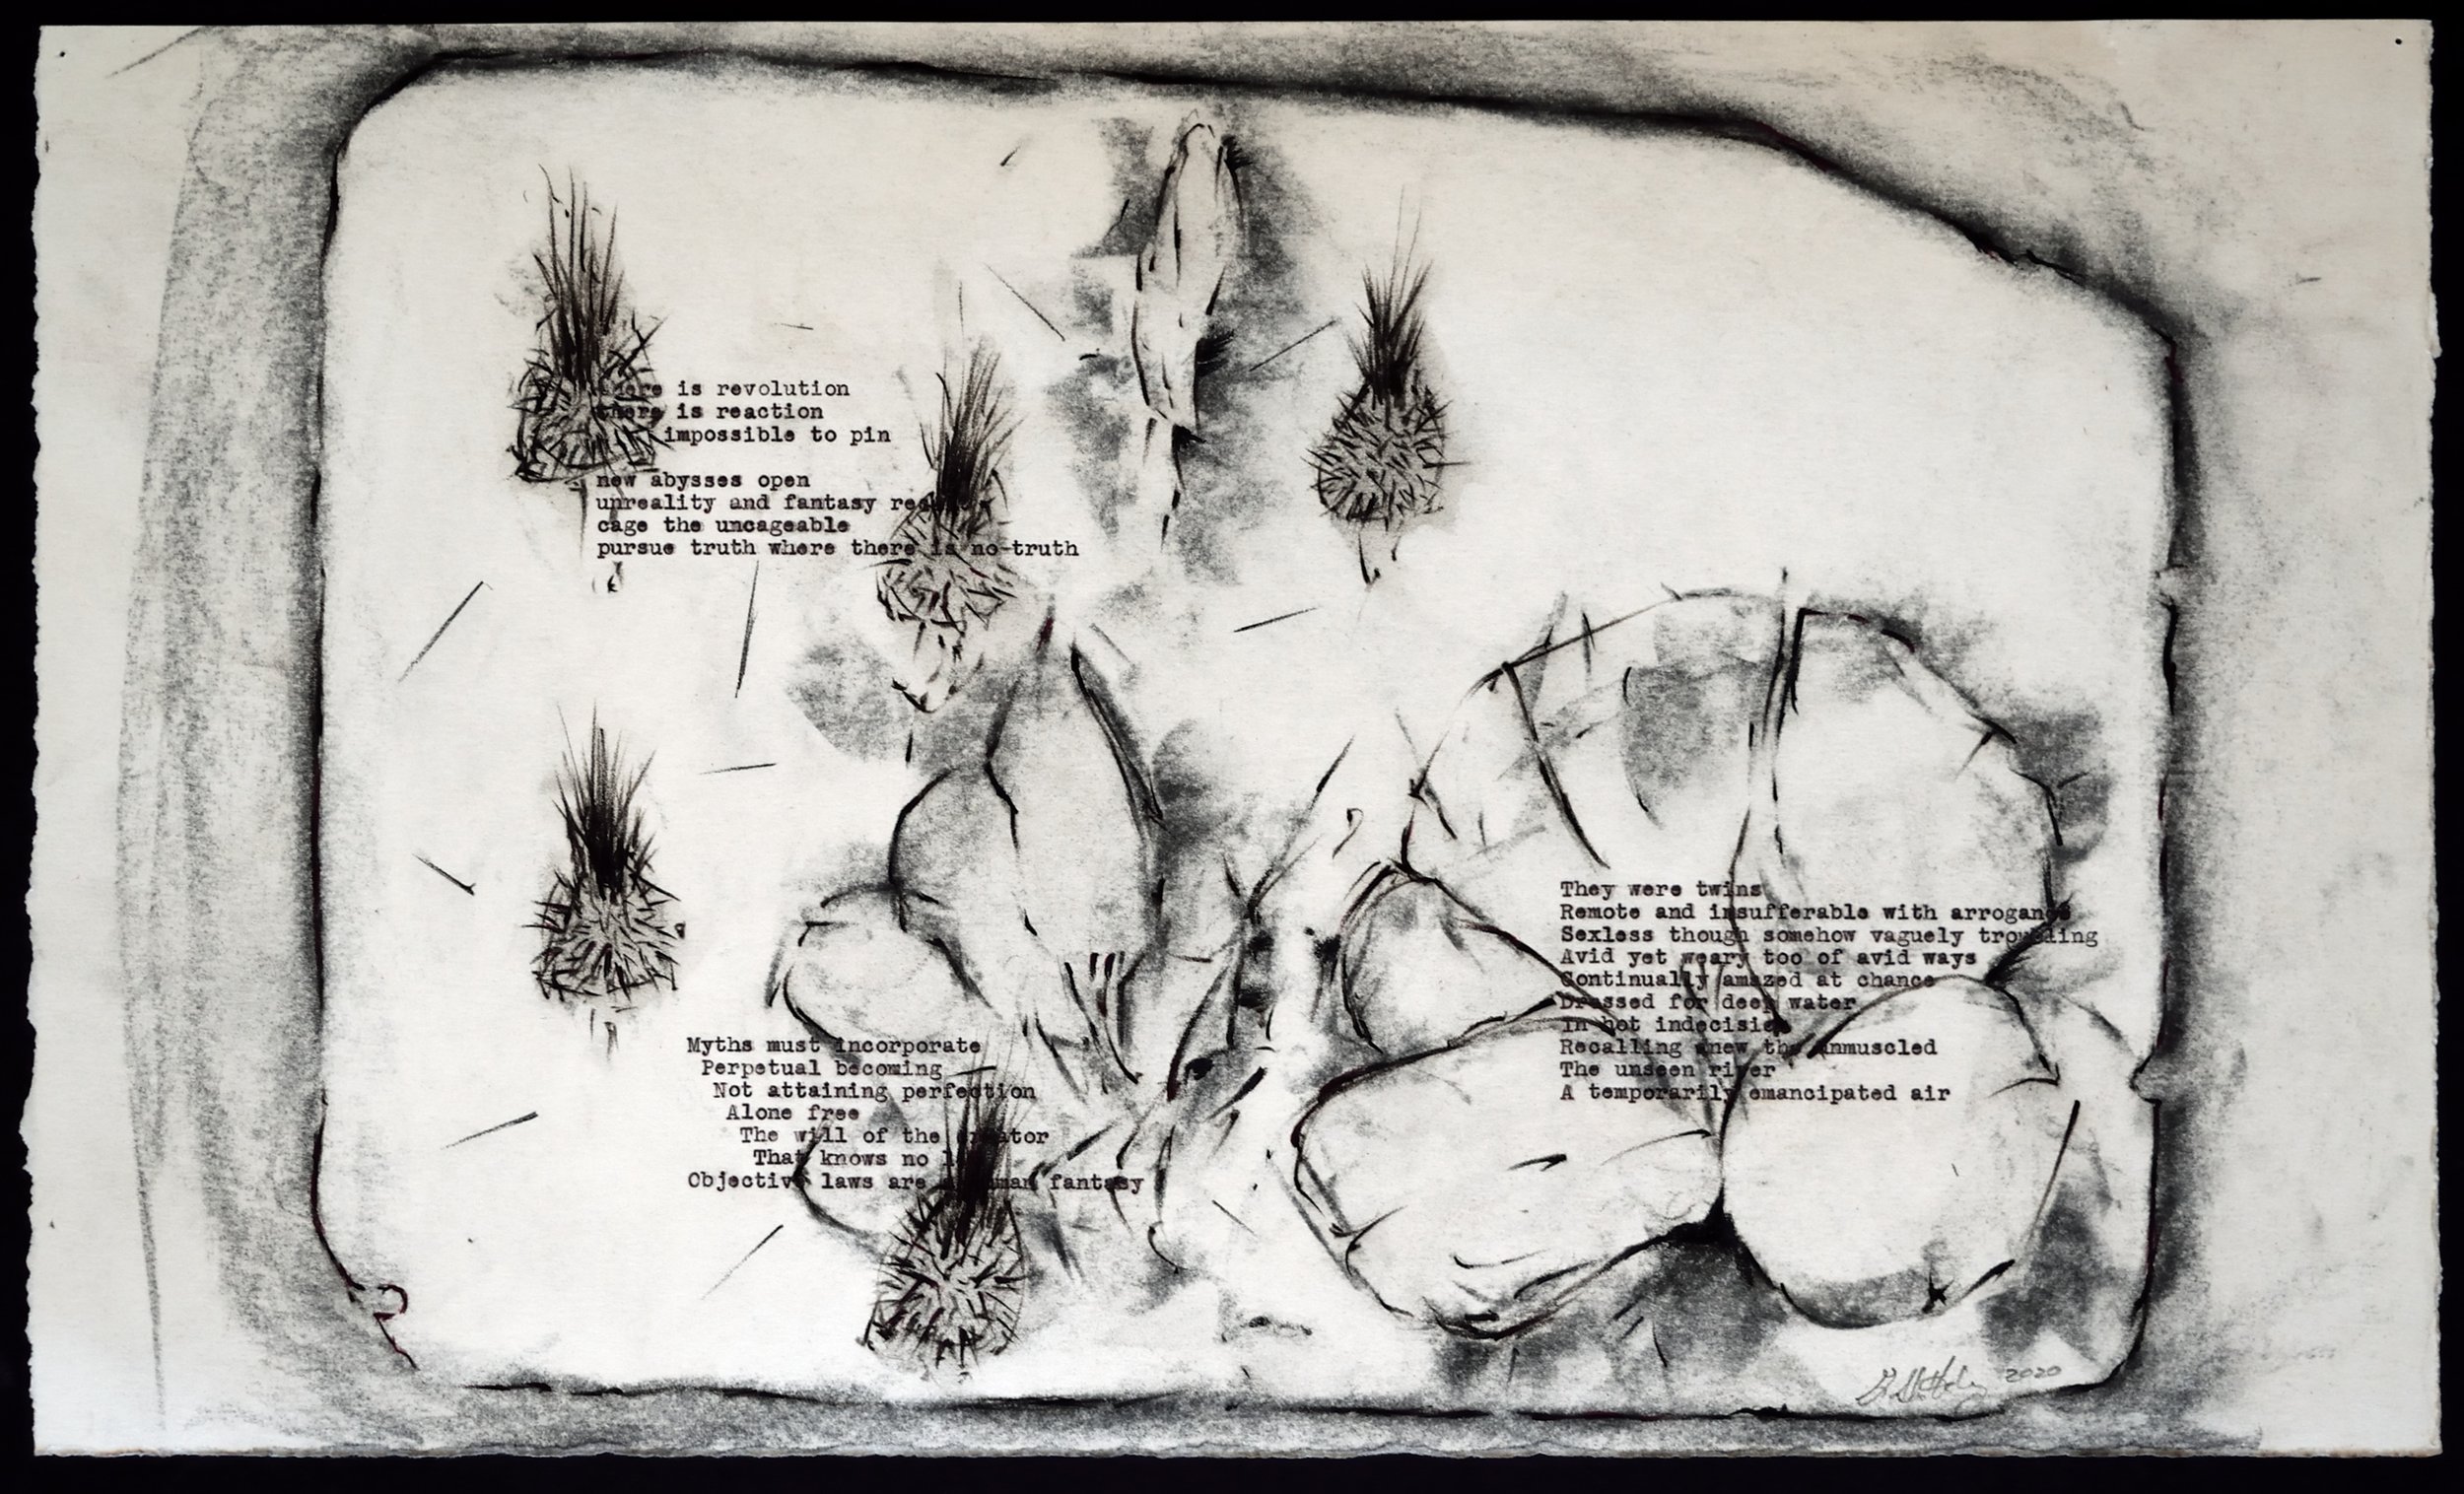 there is revolution
there is reaction
impossible to pin
new abysses open
unreality and fantasy
cage the uncageable
pursue truth where there is no-truth
Myths must incorporate
Perpetual becoming
Not attaining perfection
Alone free
The will of the creator
That knows no
Objective laws are human fantasy
They were twins
Remote and insufferable with arrogance
Sexless though somehow vaguely troubling
Avid yet weary too of avid ways
Continually amazed at chance
Dressed for deep water
In hot indecision
Recalling anew the unmuscled
The unseen river
A temporarily emancipated air
2020